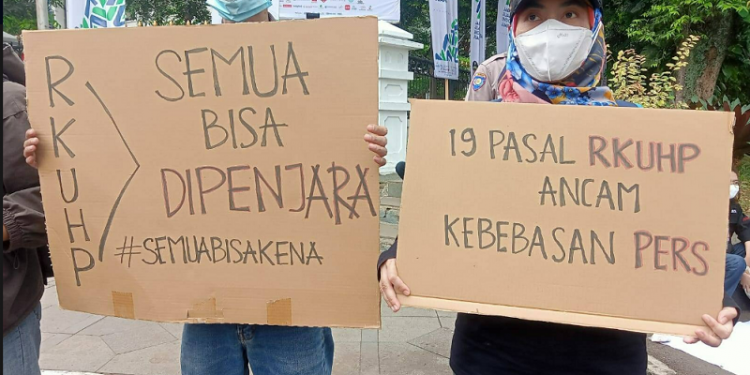 RKUHP
SEMUA
BISA
DIPENJARA
#SEMUABISAKENA
19 PASAL RKUHP
ANCAM
KEBEBASAN PERS